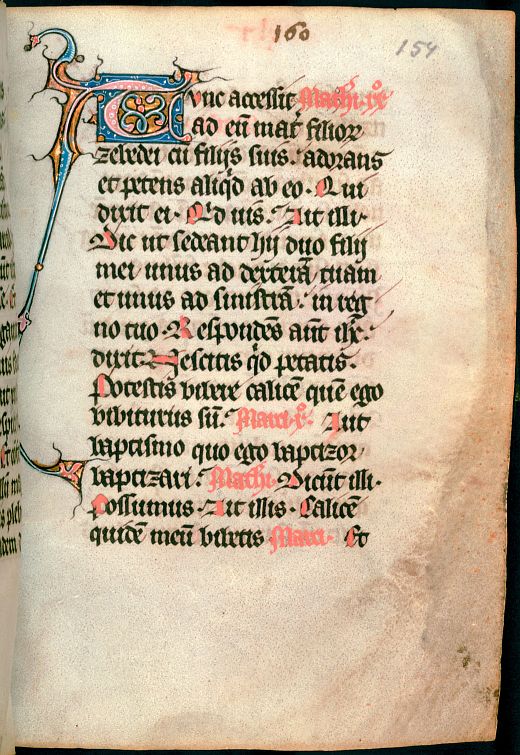 160
154
Tunc accessit Mathi. xx
ad eū mat̄ filior
zebedei cū filijs suis. adorans
et petens aliq̄d ab eo. Qui
dixit ei. Qd uis. Ait illi.
Dic ut sedeant hij duo filij
mei unus ad dexterā tuam
et unus ad sinistrā. in reg
no tuo. Respondēs aūt ihc̄.
dixit Nescitis qd petatis.
Potestis bibere calicē quē ego
bibiturus sū. Marci. x. Aut
baptismo quo ego baptizor
baptizari. Mathi. Dicūt illi.
Possumus. Ait illis. Calicē
quidē meū bibetis Marci. Et